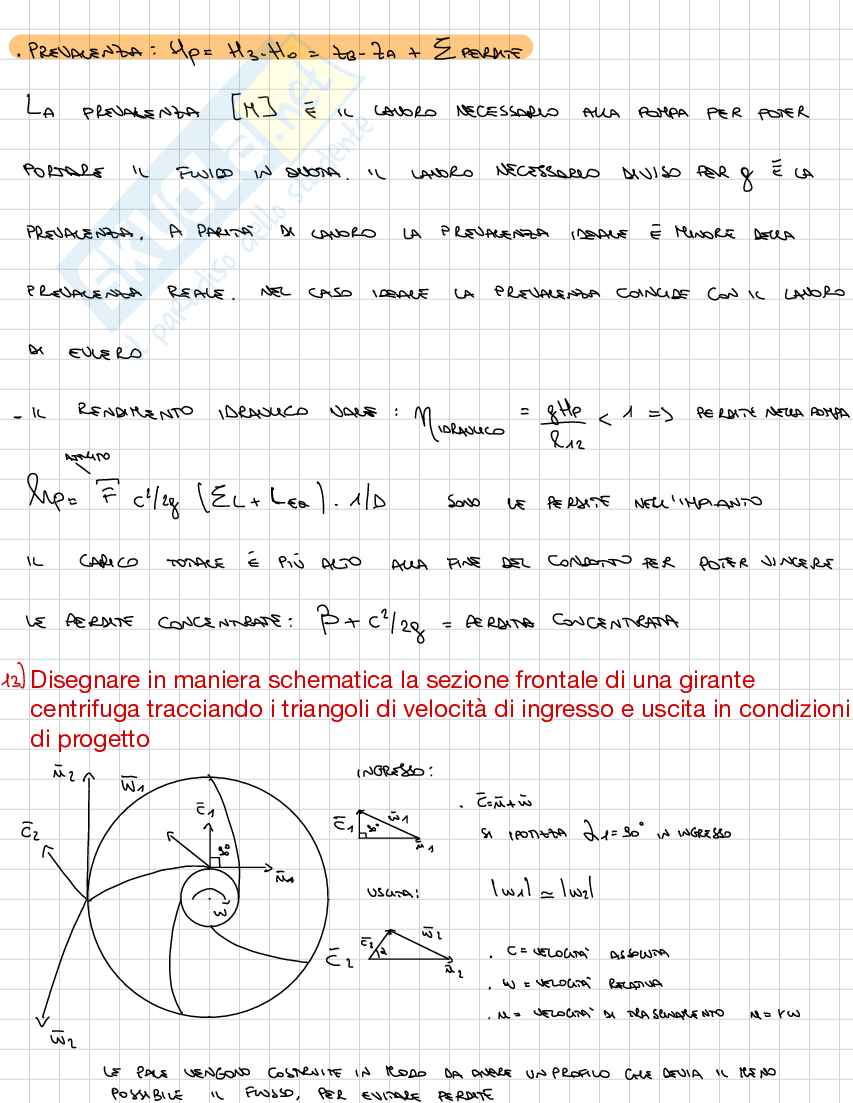 . PREVALENZA: Hp = H3-H0 = ZB-ZA + Σ PERDITE
LA PREVALENZA [M] È IL LAVORO NECESSARIO ALLA POMPA PER POTER
PORTARE IL FLUIDO IN QUOTA. IL LAVORO NECESSARIO DIVISO PER g È LA
PREVALENZA. A PARITÀ DI LAVORO LA PREVALENZA IDEALE È MINORE DELLA
PREVALENZA REALE. NEL CASO IDEALE LA PREVALENZA COINCIDE CON IL LAVORO
DI EULERO
- IL RENDIMENTO IDRAULICO VALE: η IDRAULICO = gHp/L12 < 1 => PERDITE NELLA POMPA
ATTRITO
hp = F c²/2g (ΣL + LEQ) . 1/D SONO LE PERDITE NELL'IMPIANTO
IL CARICO TOTALE È PIÙ ALTO ALLA FINE DEL CONDOTTO PER POTER VINCERE
LE PERDITE CONCENTRATE: β + c²/2g = PERDITA CONCENTRATA
12) Disegnare in maniera schematica la sezione frontale di una girante
centrifuga tracciando i triangoli di velocità di ingresso e uscita in condizioni
di progetto
u̅2
w̅1
c̅1
c̅2
90°
u̅1
ω
w̅2
INGRESSO:
c̅1 w̅1 90° u̅1
. c̅=u̅+w̅
SI IPOTIZZA α1=90° IN INGRESSO
USCITA:
|w1| ≃ |w2|
c̅2 c̅2 α w̅2 u̅2
. C = VELOCITÀ ASSOLUTA
. W = VELOCITÀ RELATIVA
. U = VELOCITÀ DI TRASCINAMENTO U = rω
LE PALE VENGONO COSTRUITE IN MODO DA AVERE UN PROFILO CHE DEVIA IL MENO
POSSIBILE IL FLUSSO, PER EVITARE PERDITE
SKUOLA.net
il paradiso dello studente